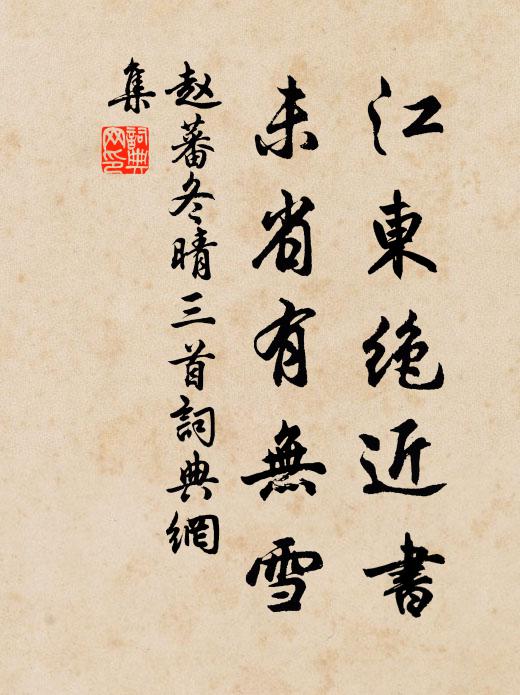 江東絶近書
未省有無雪
赵蕃冬晴三首詞典網
集
詞典
网印